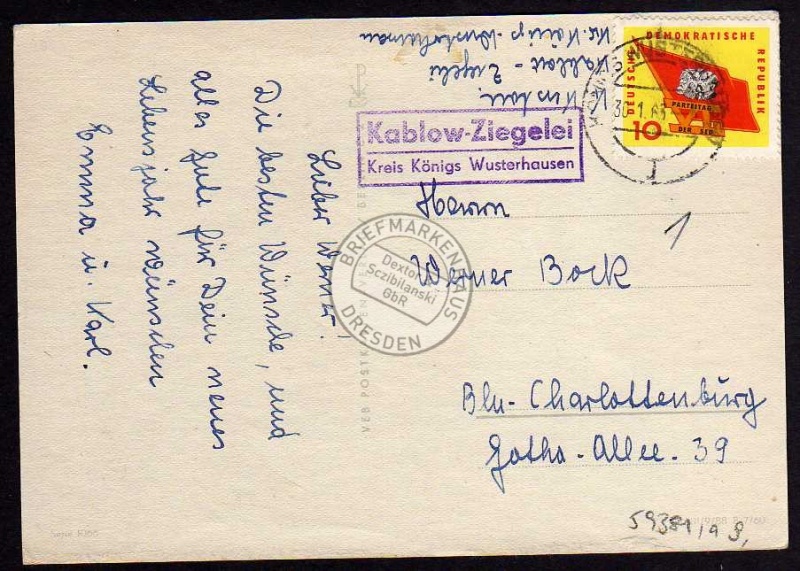 Lieber Werner!
Die besten Wünsche, und
alles Gute für Dein neues
Lebensjahr wünschen
Emma u. Karl.
Kablow - Ziegelei
Kr. Königs - Wusterhausen
DEUTSCHE DEMOKRATISCHE REPUBLIK
PARTEITAG
DER SED
10
Kablow-Ziegelei
Kreis Königs Wusterhausen
Herrn
1
Werner Bock
Bln - Charlottenburg
Gotha - Allee. 39
BRIEFMARKENHAUS
Dextor
Sczibilanski
GbR
DRESDEN
VEB POSTKARTEN
59381/a 9,